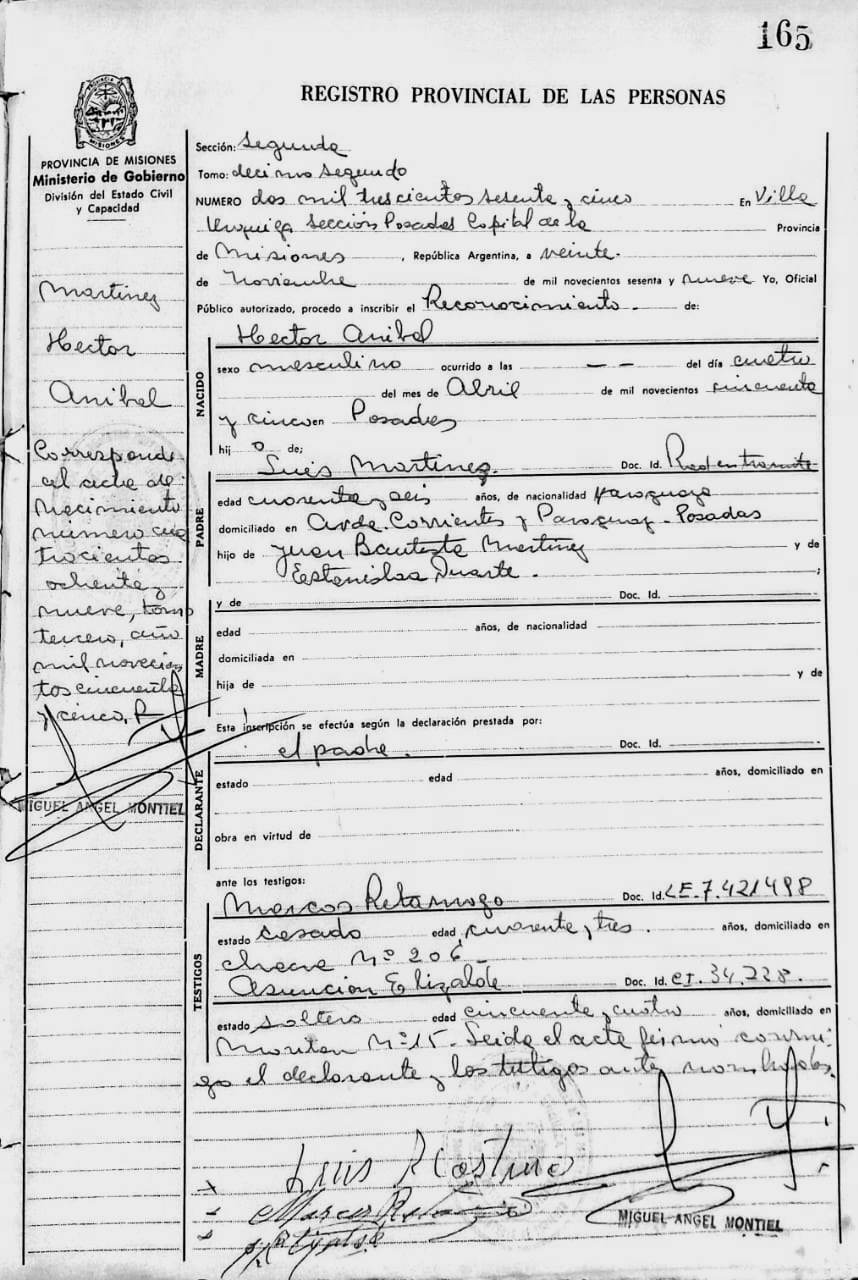 165
REGISTRO PROVINCIAL DE LAS PERSONAS
PROVINCIA DE MISIONES
Ministerio de Gobierno
División del Estado Civil
y Capacidad
Martinez
Hector
Anibal
Corresponde
al acta de
Nacimiento
número cua
trocientos
ochenta y
nueve, tomo
tercero, año
mil novecien
tos cincuenta
y cinco,
MIGUEL ANGEL MONTIEL
Sección: Segunda
Tomo: decimo segundo
NUMERO dos mil trescientos sesenta y cinco En Villa
Urquiza Sección Posadas Capital de la Provincia
de Misiones, República Argentina, a veinte
de Noviembre de mil novecientos sesenta y nueve Yo, Oficial
Público autorizado, procedo a inscribir el Reconocimiento de:
NACIDO
Hector Anibal
sexo masculino ocurrido a las — — del día cuatro
del mes de Abril de mil novecientos cincuenta
y cinco en Posadas
hij o de;
PADRE
Luis Martinez. Doc. Id.
edad cuarenta y seis años, de nacionalidad Paraguaya
domiciliado en Avda. Corrientes y Paraguay - Posadas
hijo de Juan Bautista Martinez y de
Estanislaa Duarte. ;
MADRE
y de Doc. Id.
edad años, de nacionalidad
domiciliada en
hija de y de
Esta inscripción se efectúa según la declaración prestada por:
DECLARANTE
el padre. Doc. Id.
estado edad años, domiciliado en
obra en virtud de
ante los testigos:
TESTIGOS
Marcos Retamozo Doc. Id. LE.7.421498
estado casado edad cuarenta y tres. años, domiciliado en
chacra Nº 206
Asunción Elizalde Doc. Id. CI. 34.228.
estado soltero edad cincuenta y cuatro años, domiciliado en
Nº 15. Leida el acta firmó conmi-
go el declarante y los testigos ante nombrados.
Luis
Marcos
MIGUEL ANGEL MONTIEL